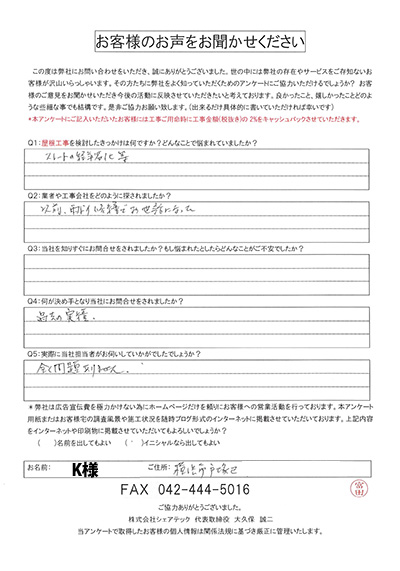 お客様のお声をお聞かせください
この度は弊社にお問い合わせをいただき、誠にありがとうございました。世の中には弊社の存在やサービスをご存知ないお
客様が沢山いらっしゃいます。その方たちに弊社をよく知っていただくためのアンケートにご協力いただけるでしょうか? お客
様のご意見をお聞かせいただき今後の活動に反映させていただきたいと考えております。良かったこと、嬉しかったことどのよ
うな些細な事でも結構です。是非ご協力お願い致します。(出来るだけ具体的に書いていただければ幸いです)
*本アンケートにご記入いただいたお客様には工事ご用命時に工事金額(税抜き)の 2%をキャッシュバックさせていただきます。
Q1:屋根工事を検討したきっかけは何ですか?どんなことで悩まれていましたか?
スレートの経年劣化 等
Q2:業者や工事会社をどのように探されましたか?
以前、お世話になった
Q3:当社を知りすぐにお問合せをされましたか?もし悩まれたとしたらどんなことがご不安でしたか?
Q4:何が決め手となり当社にお問合せをされましたか?
過去の実績。
Q5:実際に当社担当者がお伺いしていかがでしたでしょうか?
全く問題ありません。
*弊社は広告宣伝費を極力かけない為にホームページだけを頼りにお客様への営業活動を行っております。本アンケート
用紙またはお客様宅の調査風景や施工状況を随時ブログ形式のインターネットに掲載させていただいております。上記内容
をインターネットや印刷物に掲載させていただいてもよろしいでしょうか?
( )名前を出してもよい ( )イニシャルなら出してもよい
お名前: K様 ご住所: 横浜市戸塚区
FAX 042-444-5016
ご協力ありがとうございました。
株式会社シェアテック 代表取締役 大久保 誠二
当アンケートで取得したお客様の個人情報は関係法規に基づき厳正に管理いたします。